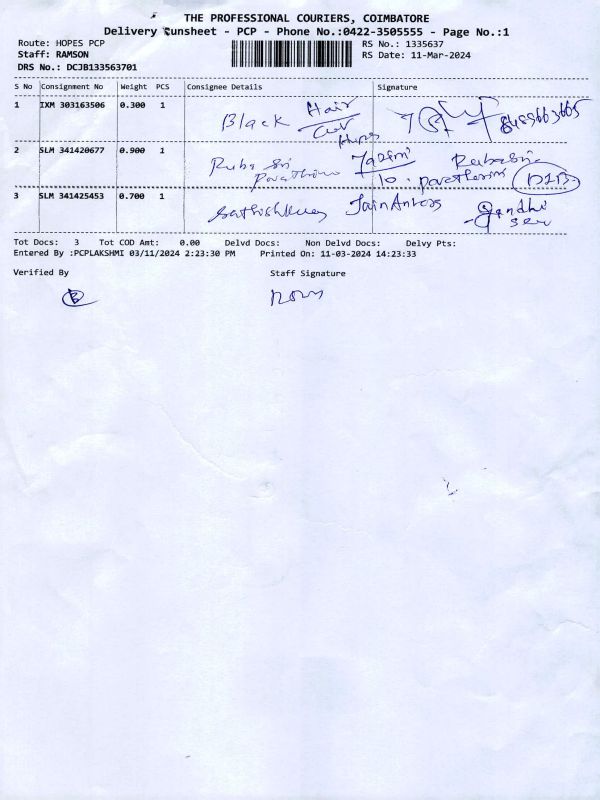 THE PROFESSIONAL COURIERS, COIMBATORE
Delivery Runsheet - PCP - Phone No.:0422-3505555 - Page No.:1
Route: HOPES PCP
RS No.: 1335637
Staff: RAMSON
RS Date: 11-Mar-2024
DRS No.: DCJB133563701
S No Consignment No Weight PCS Consignee Details Signature
1 IXM 303163506 0.300 1
Black Hair
Cut
Hopes
2 SLM 341420677 0.900 1
Ruba Sri
3 SLM 341425453 0.700 1
Gandhi
Tot Docs: 3 Tot COD Amt: 0.00 Delvd Docs: Non Delvd Docs: Delvy Pts:
Entered By :PCPLAKSHMI 03/11/2024 2:23:30 PM Printed On: 11-03-2024 14:23:33
Verified By Staff Signature